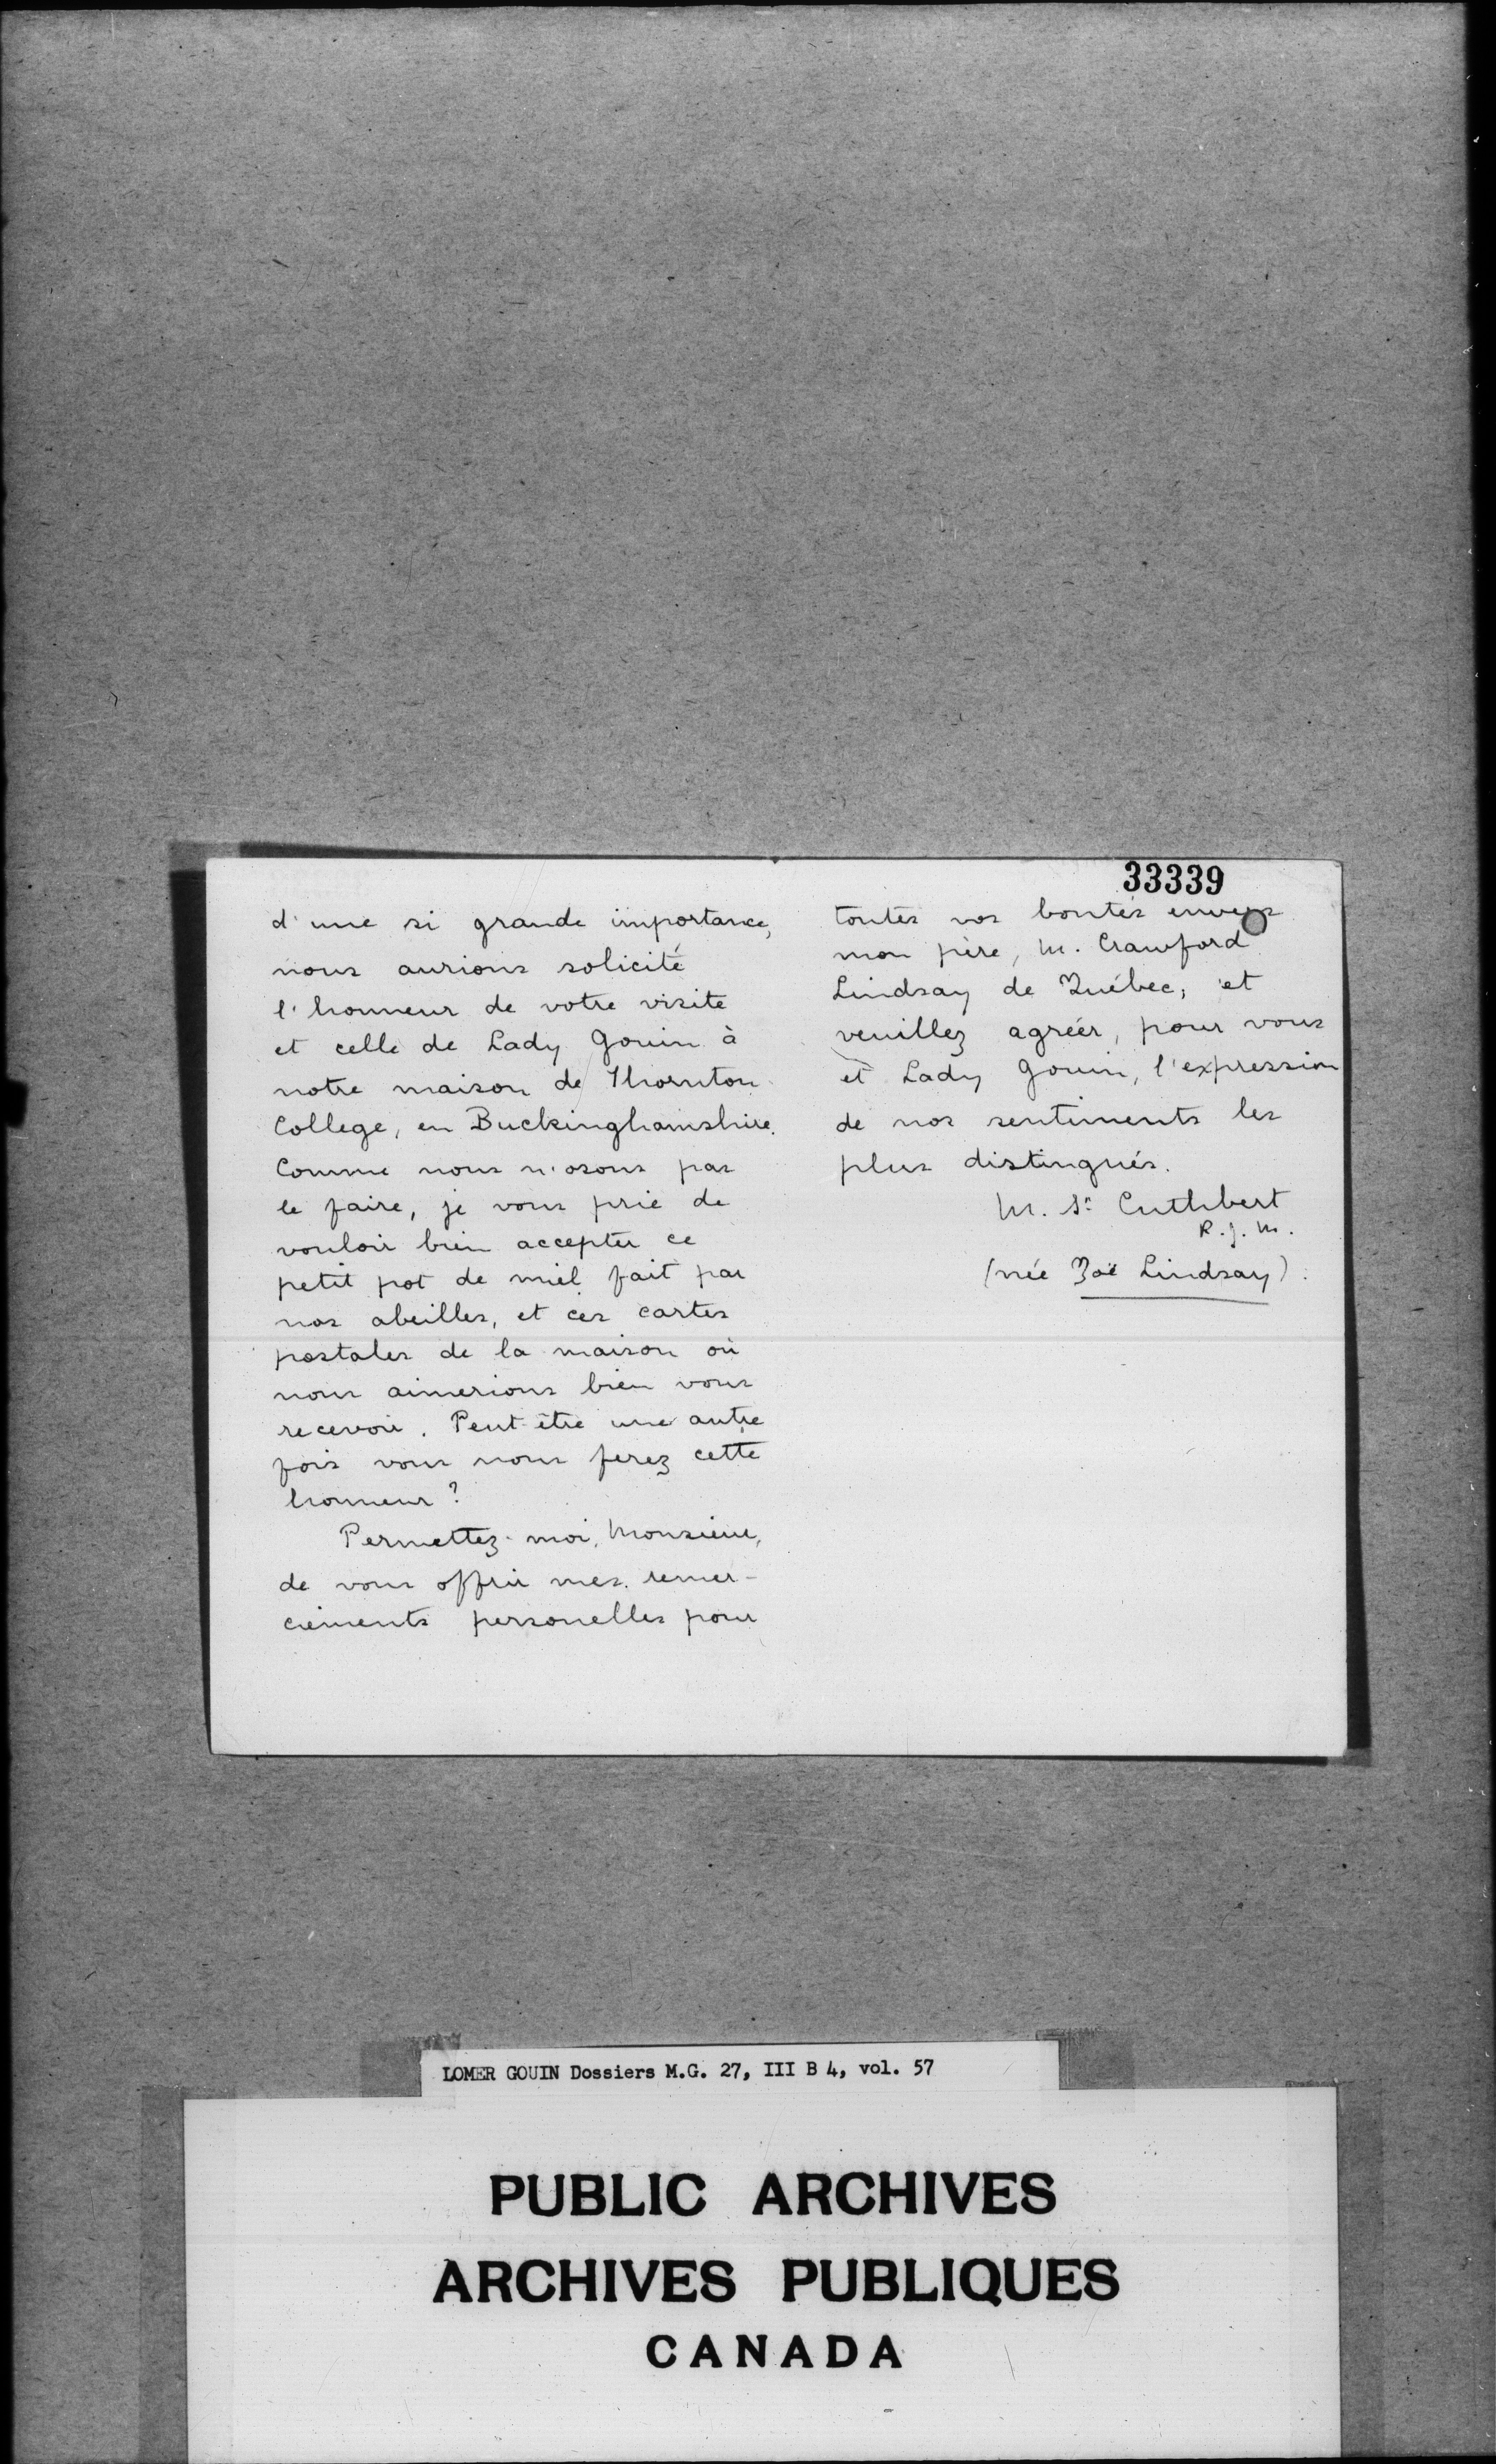 d'une si grande importance,
nous aurions solicité
l'honneur de votre visite
et celle de Lady Gouin à
notre maison de Thornton
College, en Buckinghamshire.
Comme nous n'osons pas
le faire, je vous prie de
vouloir bien accepter ce
petit pot de miel fait par
nos abeilles, et ces cartes
postales de la maison où
nous aimerions bien vous
recevoir. Peut-être une autre
fois vous nous ferez cette
honneur?
Permettez-moi, Monsieur,
de vous offrir mes remer-
ciements personelles pour
33339
toutes vos bontés envers
mon père, M. Crawford
Lindsay de Québec, et
veuillez agréer, pour vous
et Lady Gouin, l'expression
de nos sentiments les
plus distingués.
M. St Cuthbert
R.J.M.
(née Zoë Lindsay).
LOMER GOUIN Dossiers M.G. 27, III B 4, vol. 57
PUBLIC ARCHIVES
ARCHIVES PUBLIQUES
CANADA